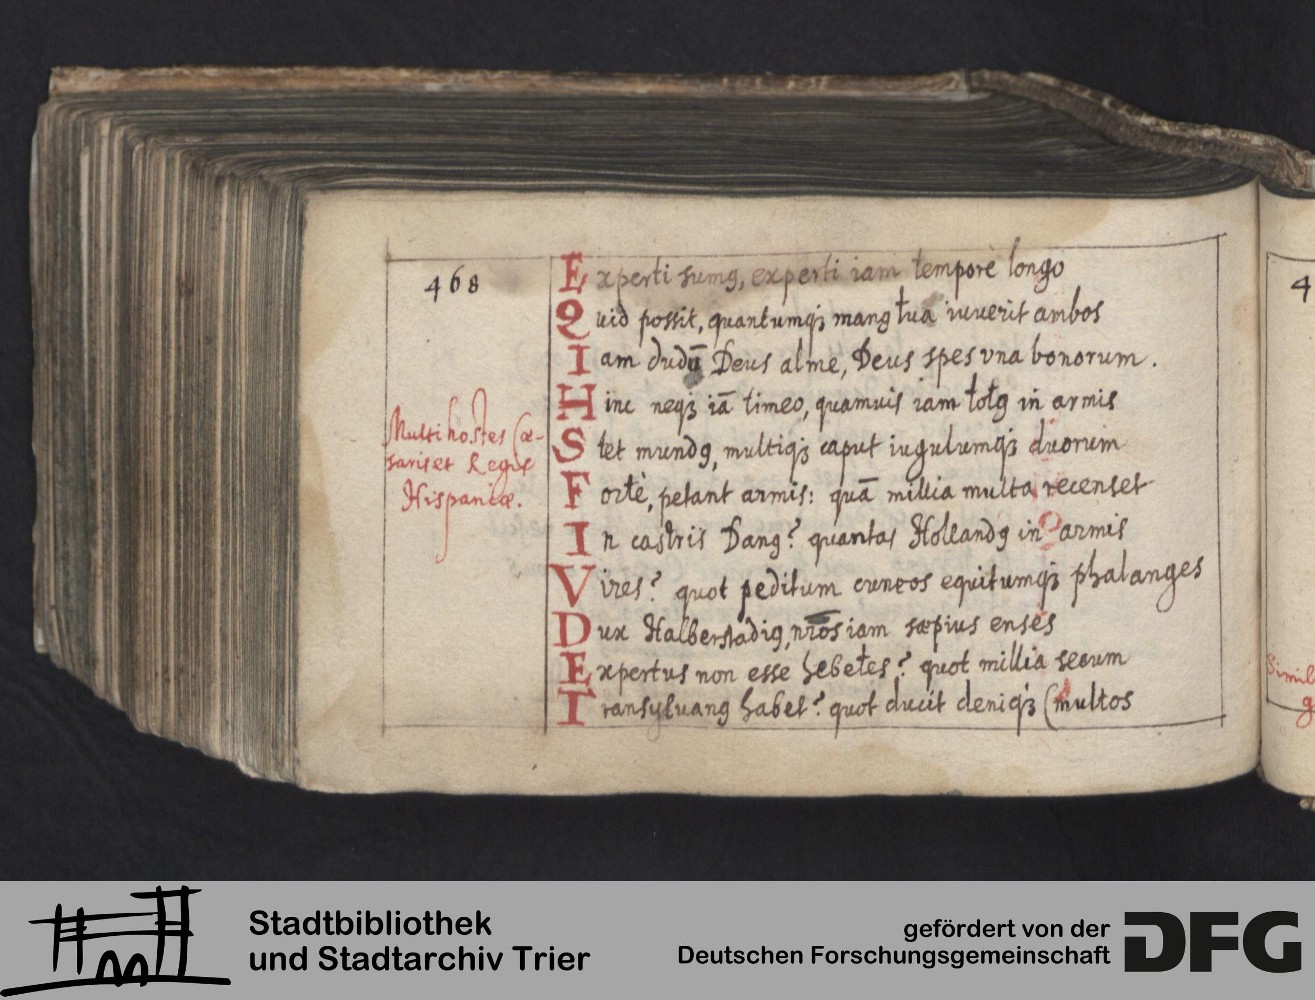 468
Experti sumꝰ, experti iam temporè longo
Quid possit, quantumqꝫ manꝰ tua iuuerit ambos
Iam dudū Deus alme, Deus spes vna bonorum.
Hinc neqꝫ iā timeo, quamuis iam totꝰ in armis
Stet mundꝰ, multiqꝫ caput iugulumqꝫ duorum
Fortè, petant armis: quā millia multa recenset
In castris Danꝰ? quantas Hollandꝰ in armis
Vires? quot peditum cuneos equitumqꝫ phalanges
Dux Halberstadiꝰ, nr̄os iam sæpius enses
Expertus non esse hebetes? quot millia secum
Transyluanꝰ habet? quot ducit deniqꝫ (multos
Multi hostes Cæ-
saris et Regis
Hispaniæ.
4
Simil
g
Stadtbibliothek
und Stadtarchiv Trier
gefördert von der
Deutschen Forschungsgemeinschaft
DFG